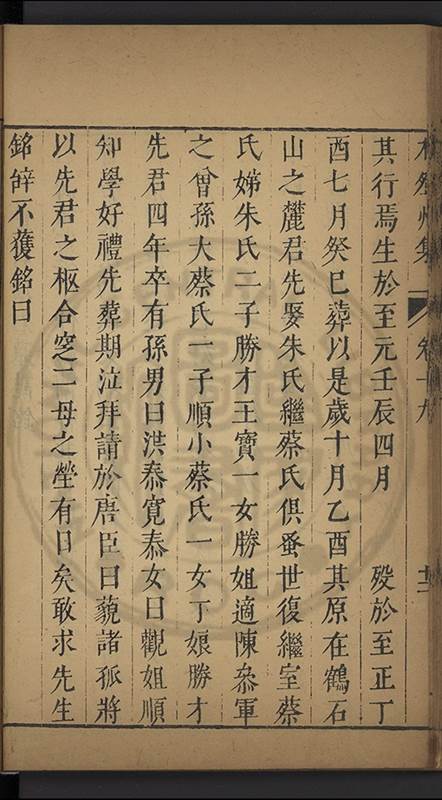 卷十九
其行焉生於至元壬辰四月　殁於至正丁
酉七月癸巳葬以是歲十月乙酉其原在鶴石
山之麓君先娶朱氏繼蔡氏俱蚤世復繼室蔡
氏娣朱氏二子勝才王寶一女勝姐適陳叅軍
之曾孫大蔡氏一子順小蔡氏一女丁娘勝才
先君四年卒有孫男曰洪泰寬泰女曰觀姐順
知學好禮先葬期泣拜請於唐臣曰藐諸孤將
以先君之柩合窆二母之塋有日矣敢求先生
銘辝不獲銘曰